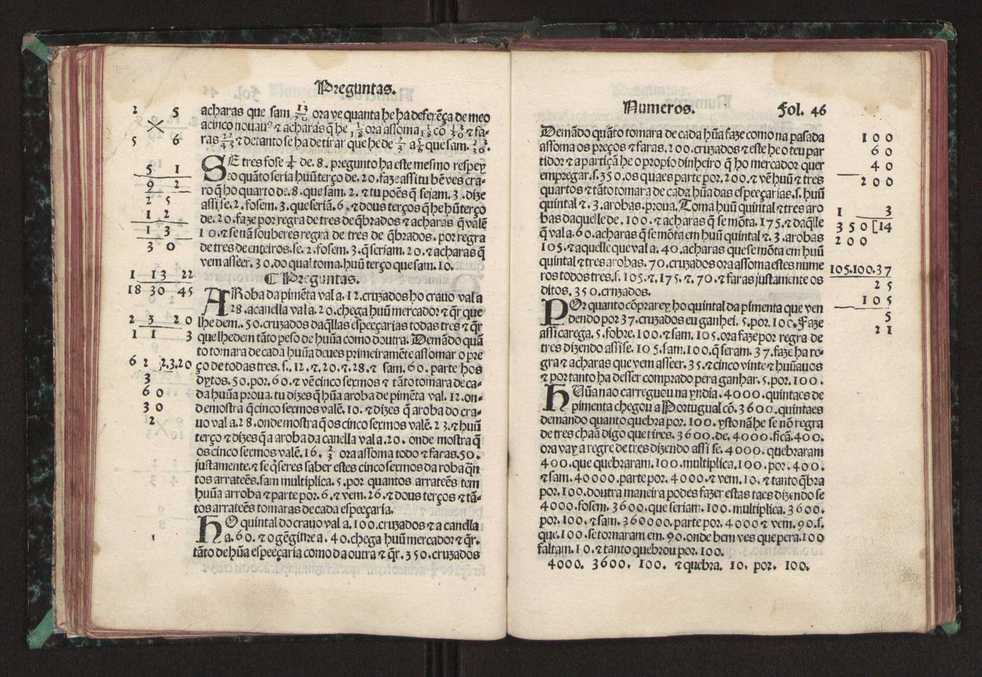 Preguntas.
acharas que sam 13/20 ora ve quanta he ha deferẽça de meo
a cinco nouauos
SE tres fose 1/4 de .8. pregunto ha este mesmo respey
to quanto seria huũ terço de .20. faze assi tu bẽ ves cra-
ro q̃ ho quarto de .8. que sam .2. ⁊ tu poẽs q̃ sejam .3. dize
assi se .2. fosem .3. que seriã .6. ⁊ dous terços q̃ he hũ terço
de .20. faze por regra de tres de q̃brados ⁊ acharas q̃ valẽ
10. ⁊ se nã souberes regra de tres de q̃brados. por regra
de tres de enteiros. se .2. fosem .3. q̃ seriam .20. ⁊ acharas q̃
vem asseer .30. do qual toma huũ terço que sam .10.
¶ Preguntas.
ARroba da pimẽta val a .12. cruzados ho crauo val a
28. a canella val a .20. chega huũ mercador ⁊ q̃r que
lhe dem .50. cruzados daq̃llas espeçarias todas tres ⁊ q̃r
que lhe dem tãto peso de huũa como doutra. Demãdo quã
to tomara de cada huũa deues primeiramẽte assomar o pre
ço de todas tres .s. 12. ⁊ .20. ⁊ .28. ⁊ sam .60. parte hos
dytos .50. por .60. ⁊ vẽ cinco sexmos ⁊ tãto tomara de ca-
da huũa proua. tu dizes q̃ hũa aroba de pimẽta val .12. on-
de mostra q̃ cinco sexmos valẽ .10. ⁊ dizes q̃ aroba do cra-
uo val a .28. onde mostra q̃ os cinco sexmos valẽ .23. ⁊ huũ
terço ⁊ dizes q̃ a aroba da canella val a .20. onde mostra q̃
os cinco sexmos valẽ .16. 2/3 ora assoma todo ⁊ faras .50.
justamente. ⁊ se q̃seres saber estes cinco sexmos da roba q̃n
tos arrateẽs. sam multiplica .5. por quantos arrateẽs tem
huũa arroba ⁊ parte por .6. ⁊ vem .26. ⁊ dous terços ⁊ tã-
tos arrateẽs tomaras de cada espeçaria.
HO quintal do crauo val a .100. cruzados ⁊ a canella
a .60. ⁊ o gẽgiure a .40. chega huũ mercador ⁊ q̃r.
tãto de hũa espeçaria como da outra ⁊ q̃r .350. cruzados
2 5
5 6
5 1
9 2
2 5
1 2
1 3
3 0
1 13 22
18 30 45
2 3 20
1 1 3
3
60
30
2
1
Numeros. Fol. 46
Demãdo quãto tomara de cada hũa faze como na pasada
assoma os preços ⁊ faras .200. cruzados ⁊ este he o teu par
tidor ⁊ a partiçã he o propio dinheiro q̃ ho mercador quer
empregar .s. 350. os quaes parte por .200. ⁊ vẽ huũ ⁊ tres
quartos ⁊ tãto tomara de cada hũa das espeçarias .s. huũ
quintal ⁊ .3. arobas. proua. Toma huũ quintal ⁊ tres aro
bas daquelle de .100. ⁊ acharas q̃ se mõta .175. ⁊ daq̃lle
q̃ val a .60. acharas q̃ se mõta em huũ quintal ⁊ .3. arobas
105. ⁊ aquelle que val a .40. acharas que se mõta em huũ
quintal ⁊ tres arobas .70. cruzados ora assoma estes nume
ros todos tres .s. 105. ⁊ .175. ⁊ .70. ⁊ faras justamente os
ditos .350. cruzados.
POr quanto cõprarey ho quintal da pimenta que ven
dendo por 37. cruzados eu ganhei .5. por .100. Faze
assi carega .5. sobre .100. ⁊ sam .105. ora faze por regra de
tres dizendo assi se .105. sam .100. q̃ seram .37. faze ha re-
gra ⁊ acharas que vem asseer .35. ⁊ cinco vinte ⁊ huũauos
⁊ por tanto ha desser comprado pera ganhar .5. por .100.
HUũa nao carregueu na yndia .4000. quintaes de
pimenta chegou a Portugual cõ .3600. quintaes
demando quanto quebra por .100. ysto nã he se nõ regra
de tres chaã digo que tires .3600. de .4000. ficã .400.
ora vay a regre de tres dizendo assi se .4000. quebraram
400. que quebraram .100. multiplica .100. por .400.
⁊ sam .40000. parte por .4000 ⁊ vem .10. ⁊ tanto q̃bra
por .100. doutra maneira podes fazer estas taes dizendo se
4000. fosem .3600. que seriam .100. multiplica .3600.
por .100. ⁊ sam .360000. parte por .4000 ⁊ vem .90. s.
que .100. se tornaram em .90. onde bem ves que pera .100
faltam .10. ⁊ tanto quebrou por .100.
4000. 3600. 100. ⁊ quebra. 10. por. 100.
100
60
40
200
1 3
350[14
200
105.100.37
25
105
5
21